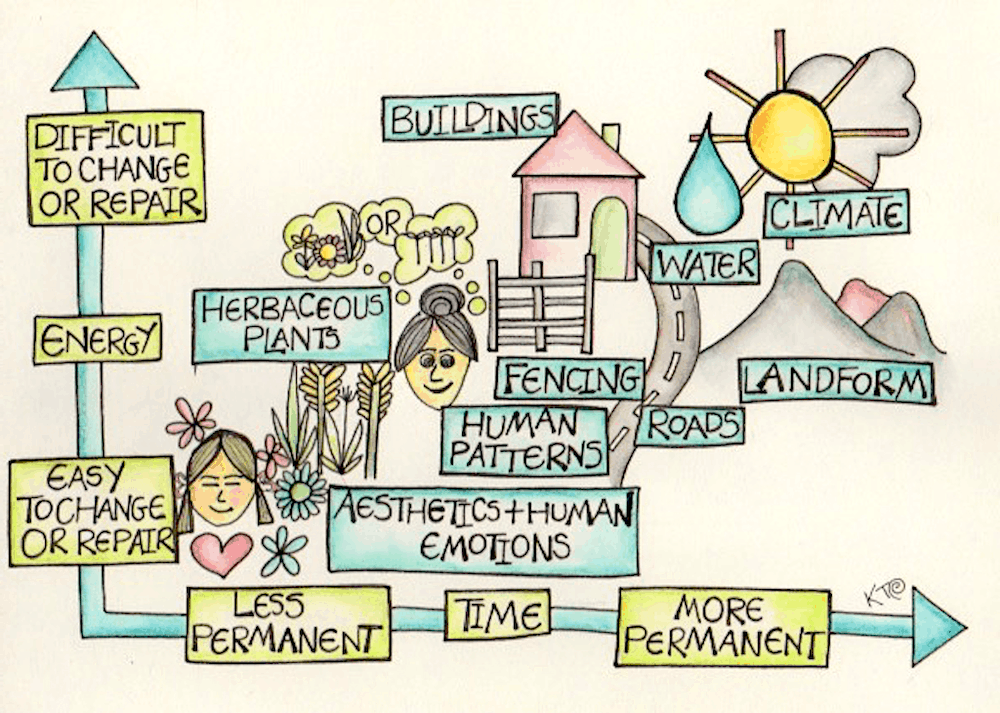 DIFFICULT
TO CHANGE
OR REPAIR
ENERGY
EASY
TO CHANGE
OR REPAIR
BUILDINGS
OR
HERBACEOUS
PLANTS
WATER
CLIMATE
FENCING
LANDFORM
HUMAN
PATTERNS
ROADS
AESTHETICS+HUMAN
EMOTIONS
LESS
PERMANENT
TIME
MORE
PERMANENT